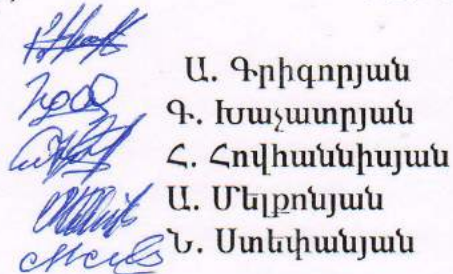 Ա. Գրիգորյան
Գ. Խաչատրյան
Հ. Հովհաննիսյան
Ա. Մելքոնյան
Ն. Ստեփանյան